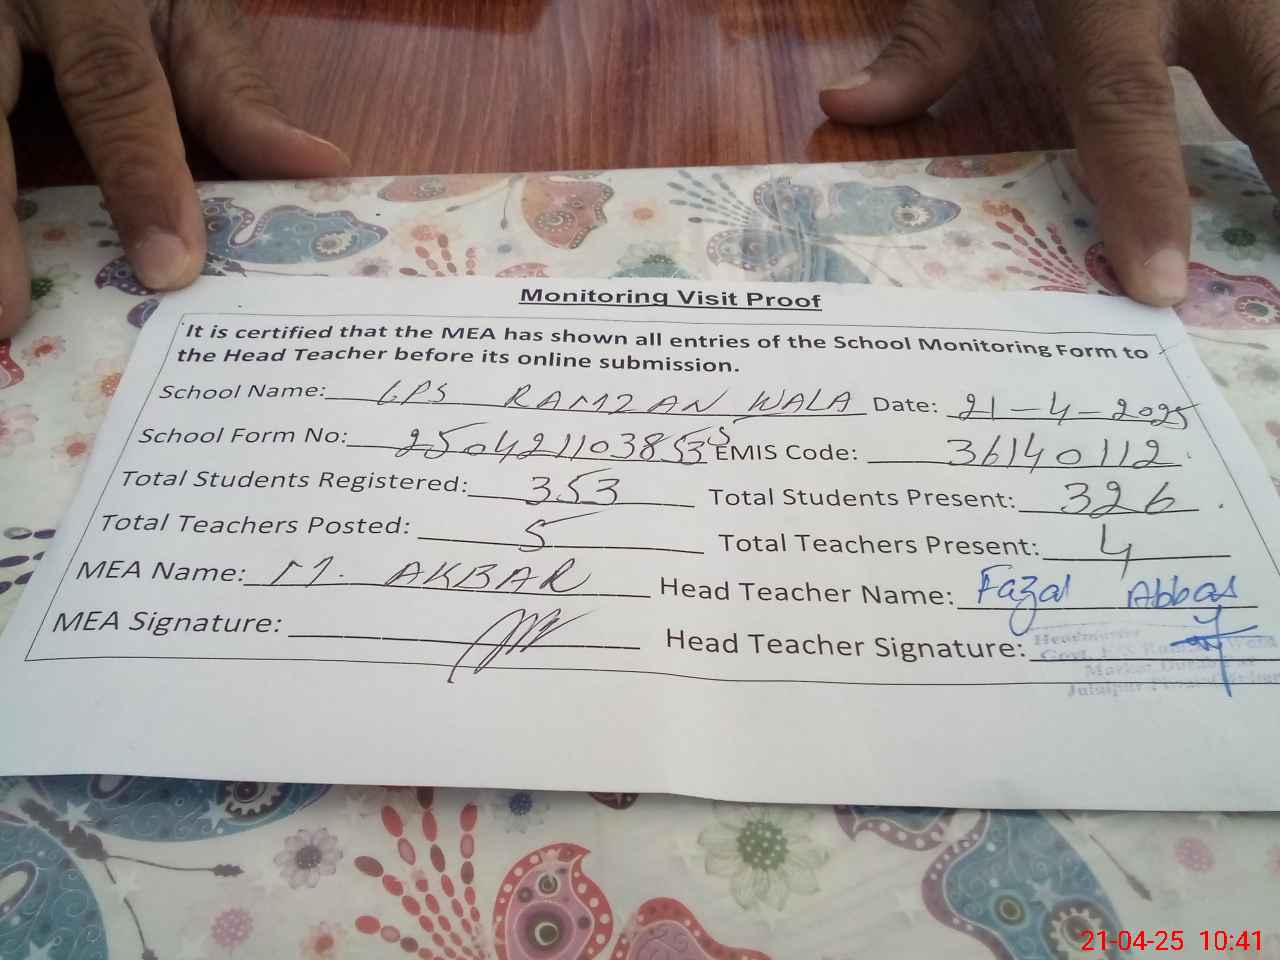 Monitoring Visit Proof
It is certified that the MEA has shown all entries of the School Monitoring Form to
the Head Teacher before its online submission.
School Name: GPS RAMZAN WALA Date: 21-4-2025
School Form No: 250421103853 EMIS Code: 36140112
Total Students Registered: 353 Total Students Present: 326
Total Teachers Posted: 5 Total Teachers Present: 4
MEA Name: M. AKBAR Head Teacher Name: Fazal Abbas
MEA Signature: Head Teacher Signature:
Headmaster
Govt.
21-04-25 10:41